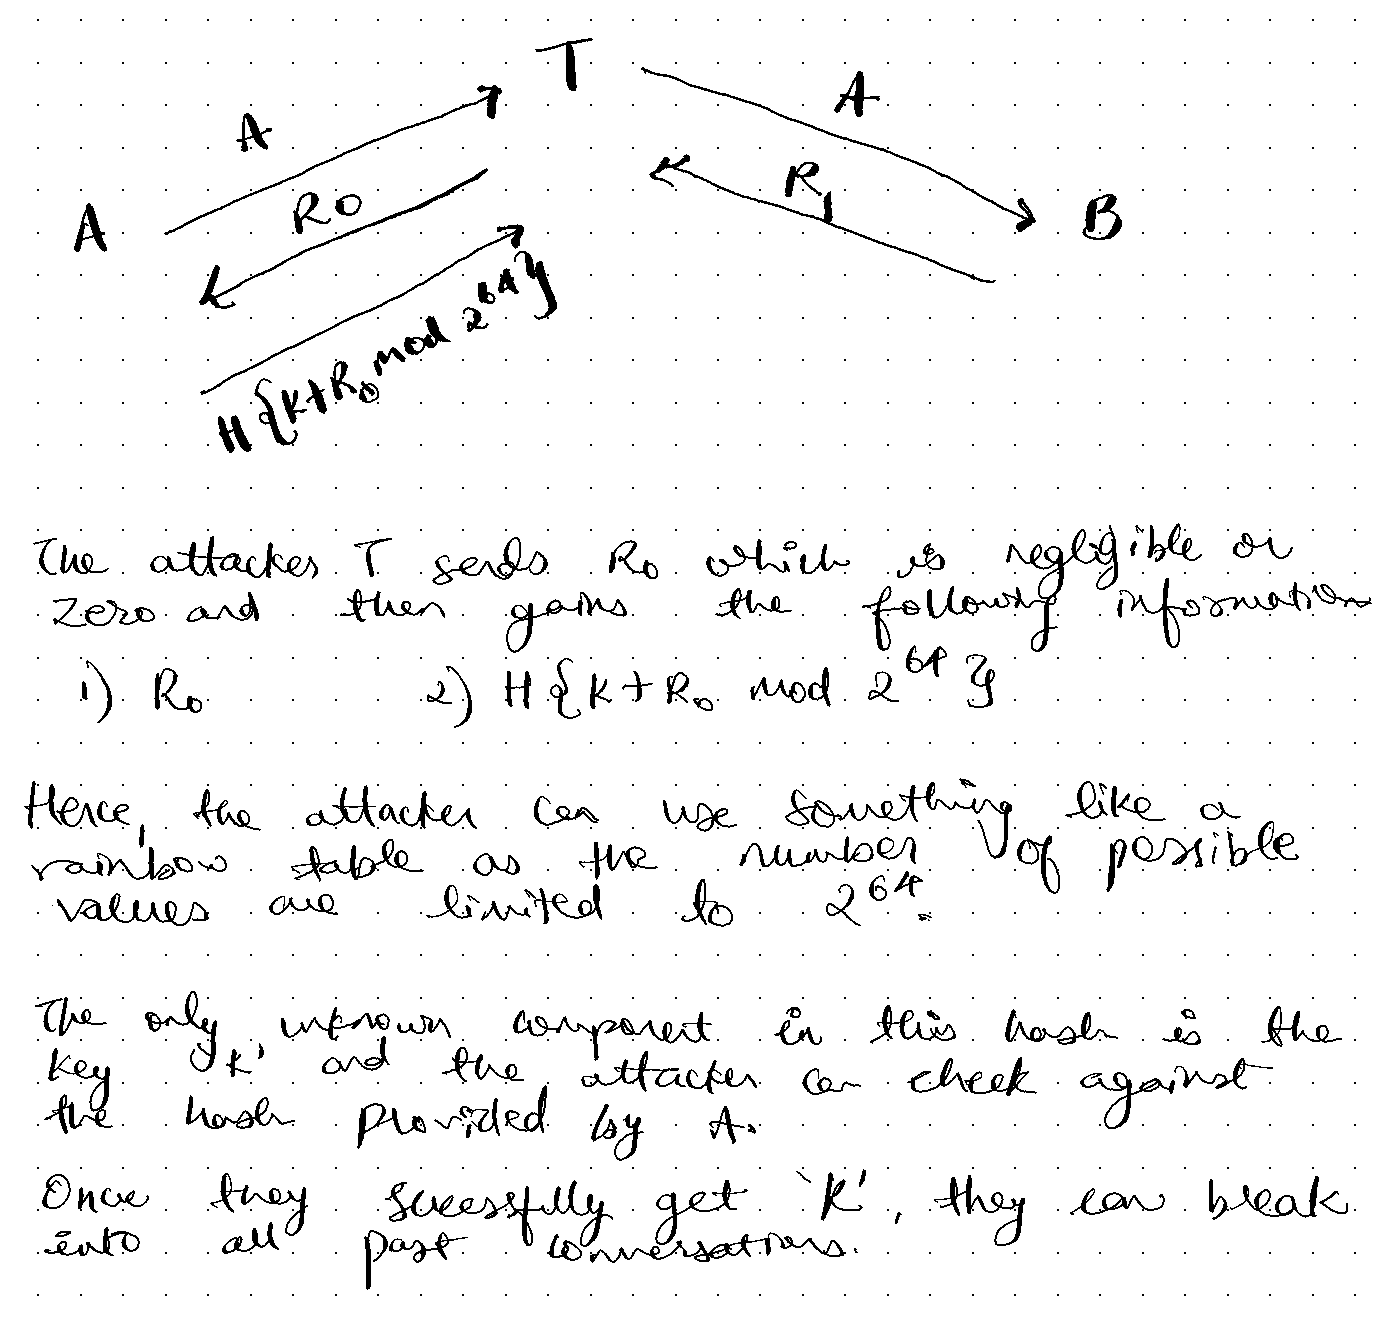 T
A
A
R0
R1
A
B
H{K+R0 mod 2^64}
The attacker T sends R0 which is negligible or
zero and then gains the following information
1) R0 2) H{K+R0 mod 2^64}
Hence, the attacker can use something like a
rainbow table as the number of possible
values are limited to 2^64.
The only unknown component in this hash is the
key 'K' and the attacker can check against
the hash provided by A.
Once they sucessfully get 'K', they can break
into all past conversations.